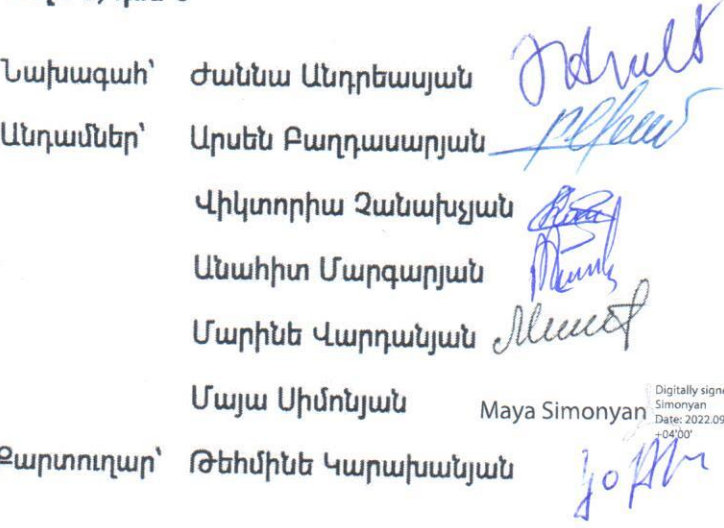 Նախագահ՝ Ժաննա Անդրեասյան
Անդամներ՝ Արսեն Բաղդասարյան
Վիկտորիա Չանախչյան
Անահիտ Մարգարյան
Մարինե Վարդանյան
Մայա Սիմոնյան Maya Simonyan
Digitally signe
Simonyan
Date: 2022.09
+04'00'
Քարտուղար՝ Թեհմինե Կարախանյան